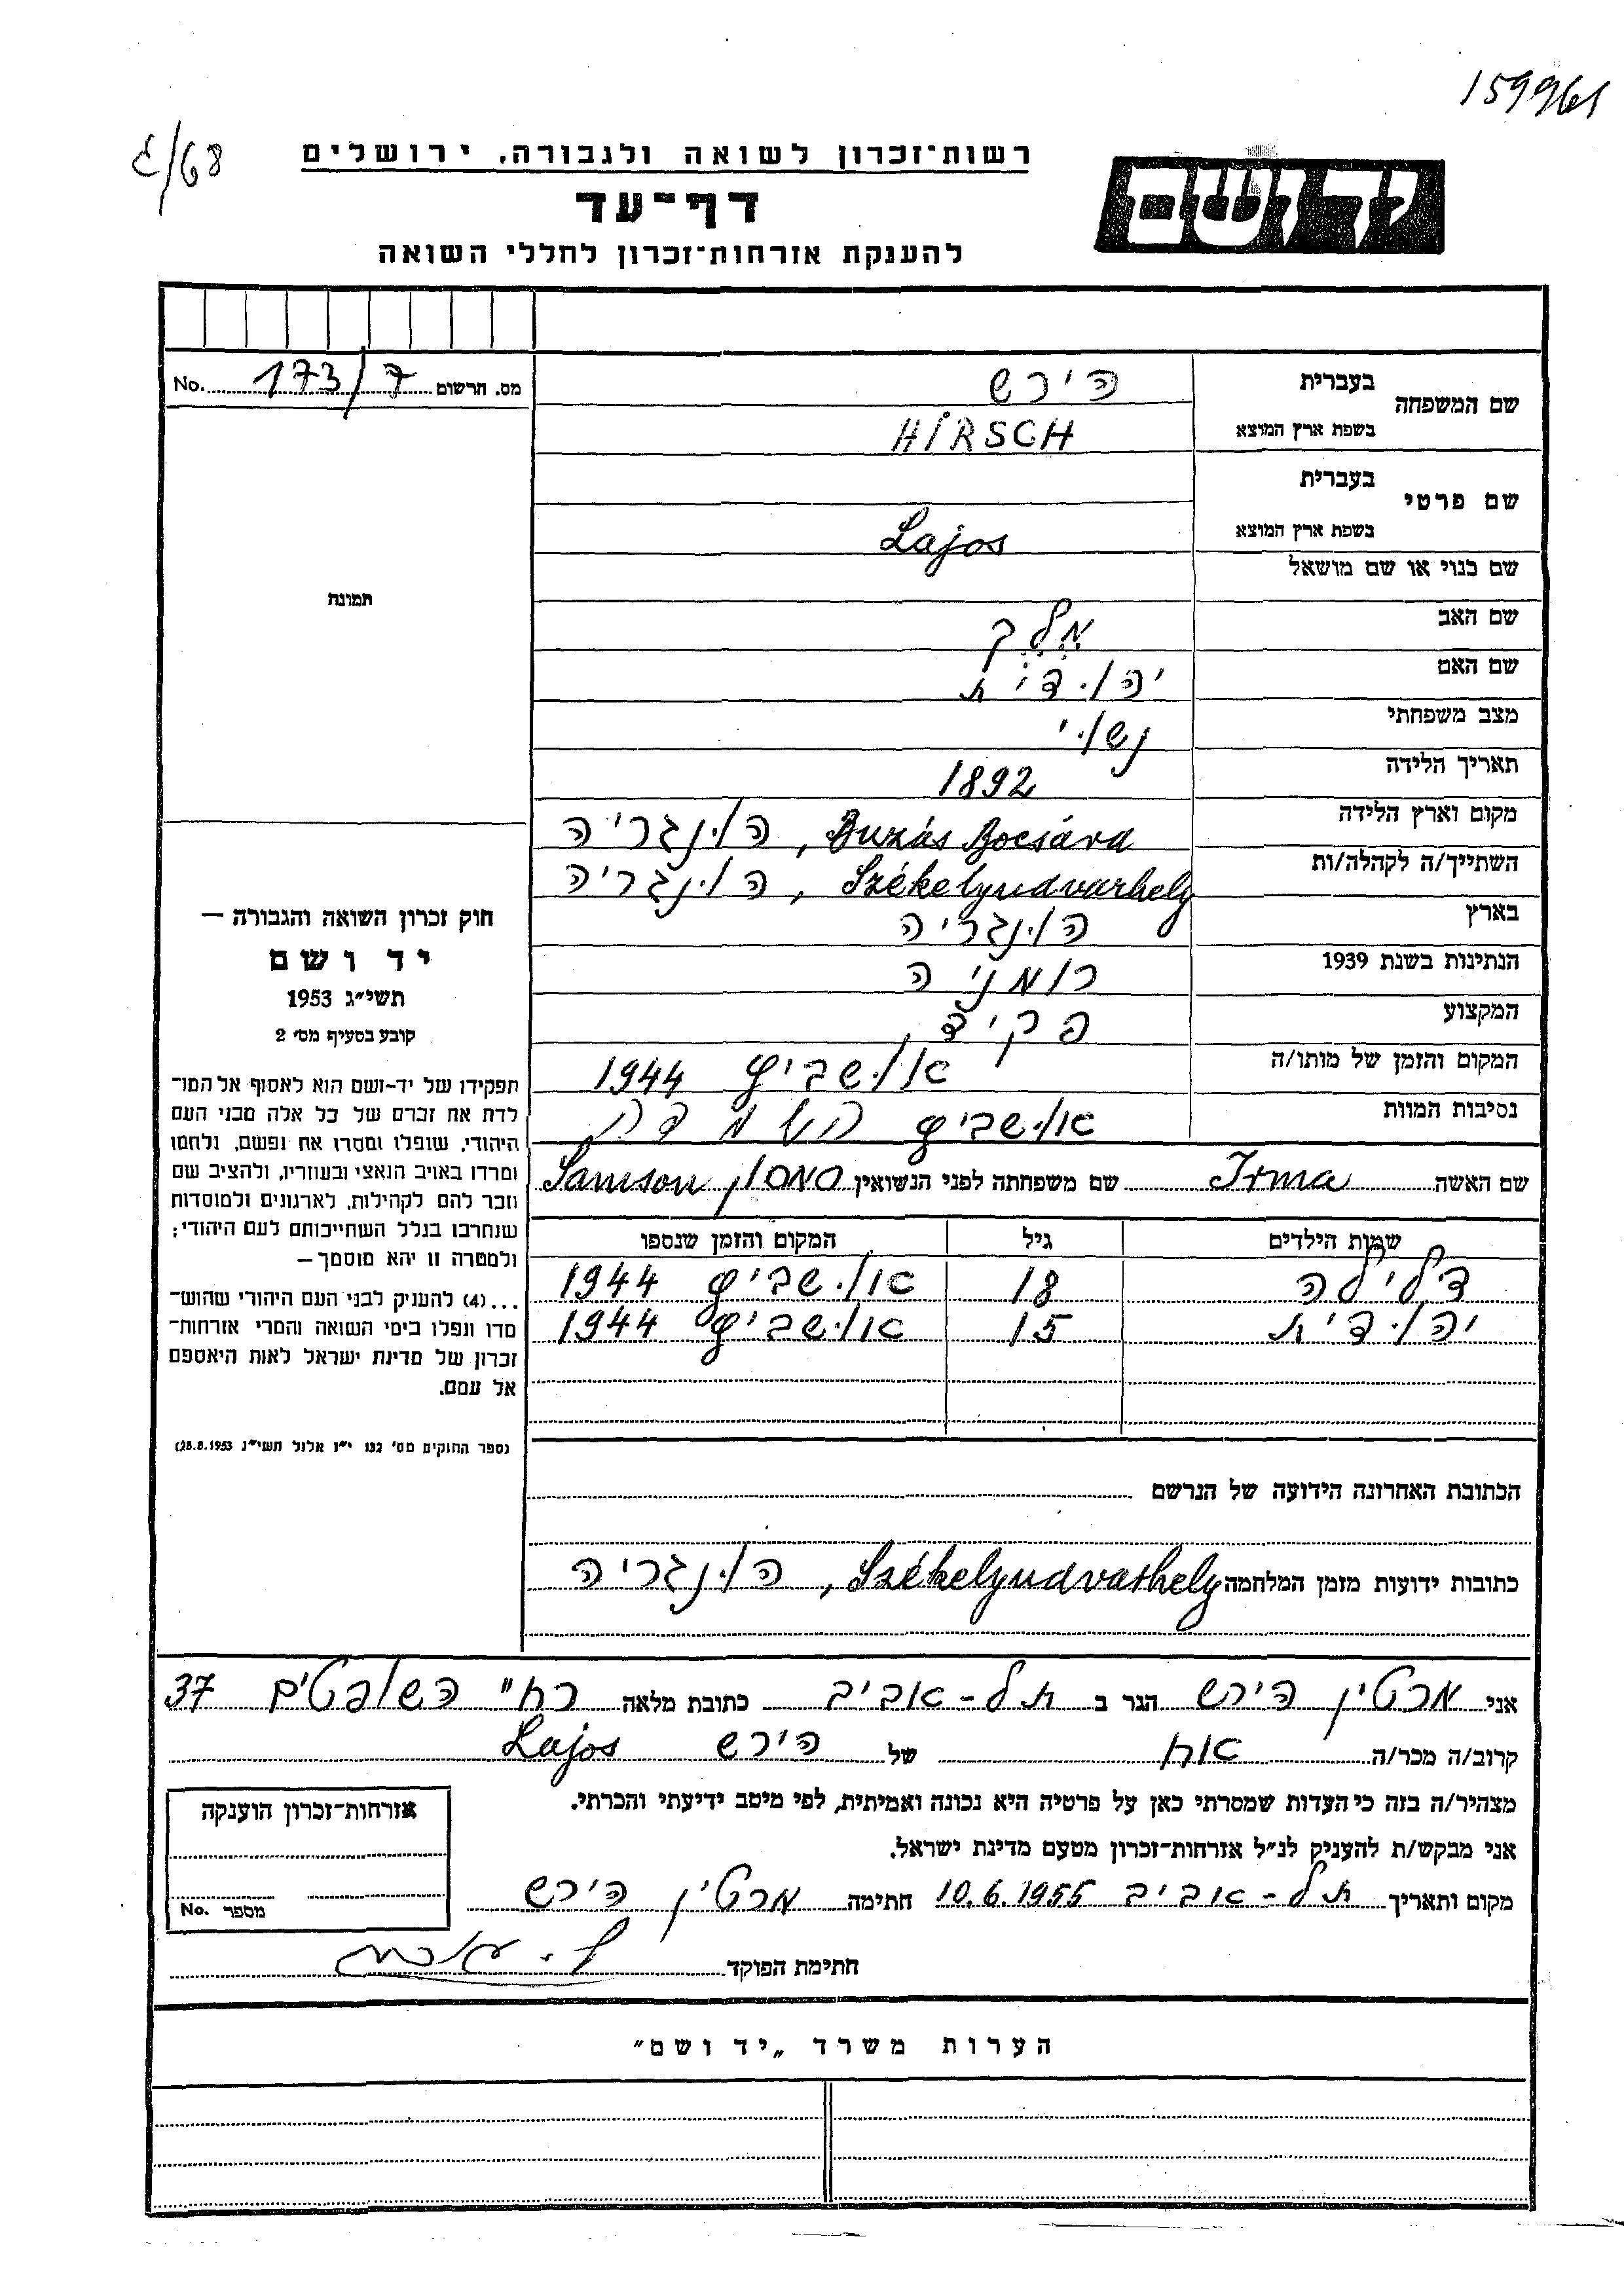 159961
68/ג
רשות־זכרון לשואה ולגבורה, ירושלים
יד ושם
דף־עד
להענקת אזרחות־זכרון לחללי השואה
מס. הרשום 173/7 No.
שם המשפחה
בעברית הירש
בשפת ארץ המוצא HIRSCH
שם פרטי
בעברית
בשפת ארץ המוצא Lajos
שם כנוי או שם מושאל
שם האב מֶלֶך
שם האם יהודית
מצב משפחתי נשוי
תאריך הלידה 1892
מקום וארץ הלידה Buzás Bocsárd, הונגריה
השתייך/ה לקהלה/ות Székelyudvarhely, הונגריה
בארץ הונגריה
הנתינות בשנת 1939 רומניה
המקצוע פקיד
המקום והזמן של מותו/ה אושביץ 1944
נסיבות המוות אושביץ השמדה
שם האשה Irma שם משפחתה לפני הנשואין סמסון Samson
שמות הילדים גיל המקום והזמן שנספו
דלילה 18 אושביץ 1944
יהודית 15 אושביץ 1944
תמונה
חוק זכרון השואה והגבורה —
יד ושם
תשי״ג 1953
קובע בסעיף מס׳ 2
תפקידו של יד-ושם הוא לאסוף אל המו־
לדת את זכרם של כל אלה מבני העם
היהודי, שנפלו ומסרו את נפשם, נלחמו
ומרדו באויב הנאצי ובעוזריו, ולהציב שם
וזכר להם לקהילות, לארגונים ולמוסדות
שנחרבו בגלל השתייכותם לעם היהודי;
ולמטרה זו יהא מוסמך —
...(4) להעניק לבני העם היהודי שהוש־
מדו ונפלו בימי השואה והמרי אזרחות־
זכרון של מדינת ישראל לאות היאספם
אל עמם.
(ספר החוקים מס׳ 132 י״ז אלול תשי״ג 28.8.1953)
הכתובת האחרונה הידועה של הנרשם
כתובות ידועות מזמן המלחמה Székelyudvarhely, הונגריה
אני מרטין הירש הגר ב תל-אביב כתובת מלאה רח״ השופטים 37
קרוב/ה מכר/ה אח של הירש Lajos
מצהיר/ה בזה כי העדות שמסרתי כאן על פרטיה היא נכונה ואמיתית, לפי מיטב ידיעתי והכרתי.
אני מבקש/ת להעניק לנ״ל אזרחות־זכרון מטעם מדינת ישראל.
מקום ותאריך תל-אביב 10.6.1955 חתימה מרטין הירש
חתימת הפוקד
אזרחות־זכרון הוענקה
מספר No.
הערות משרד „יד ושם״